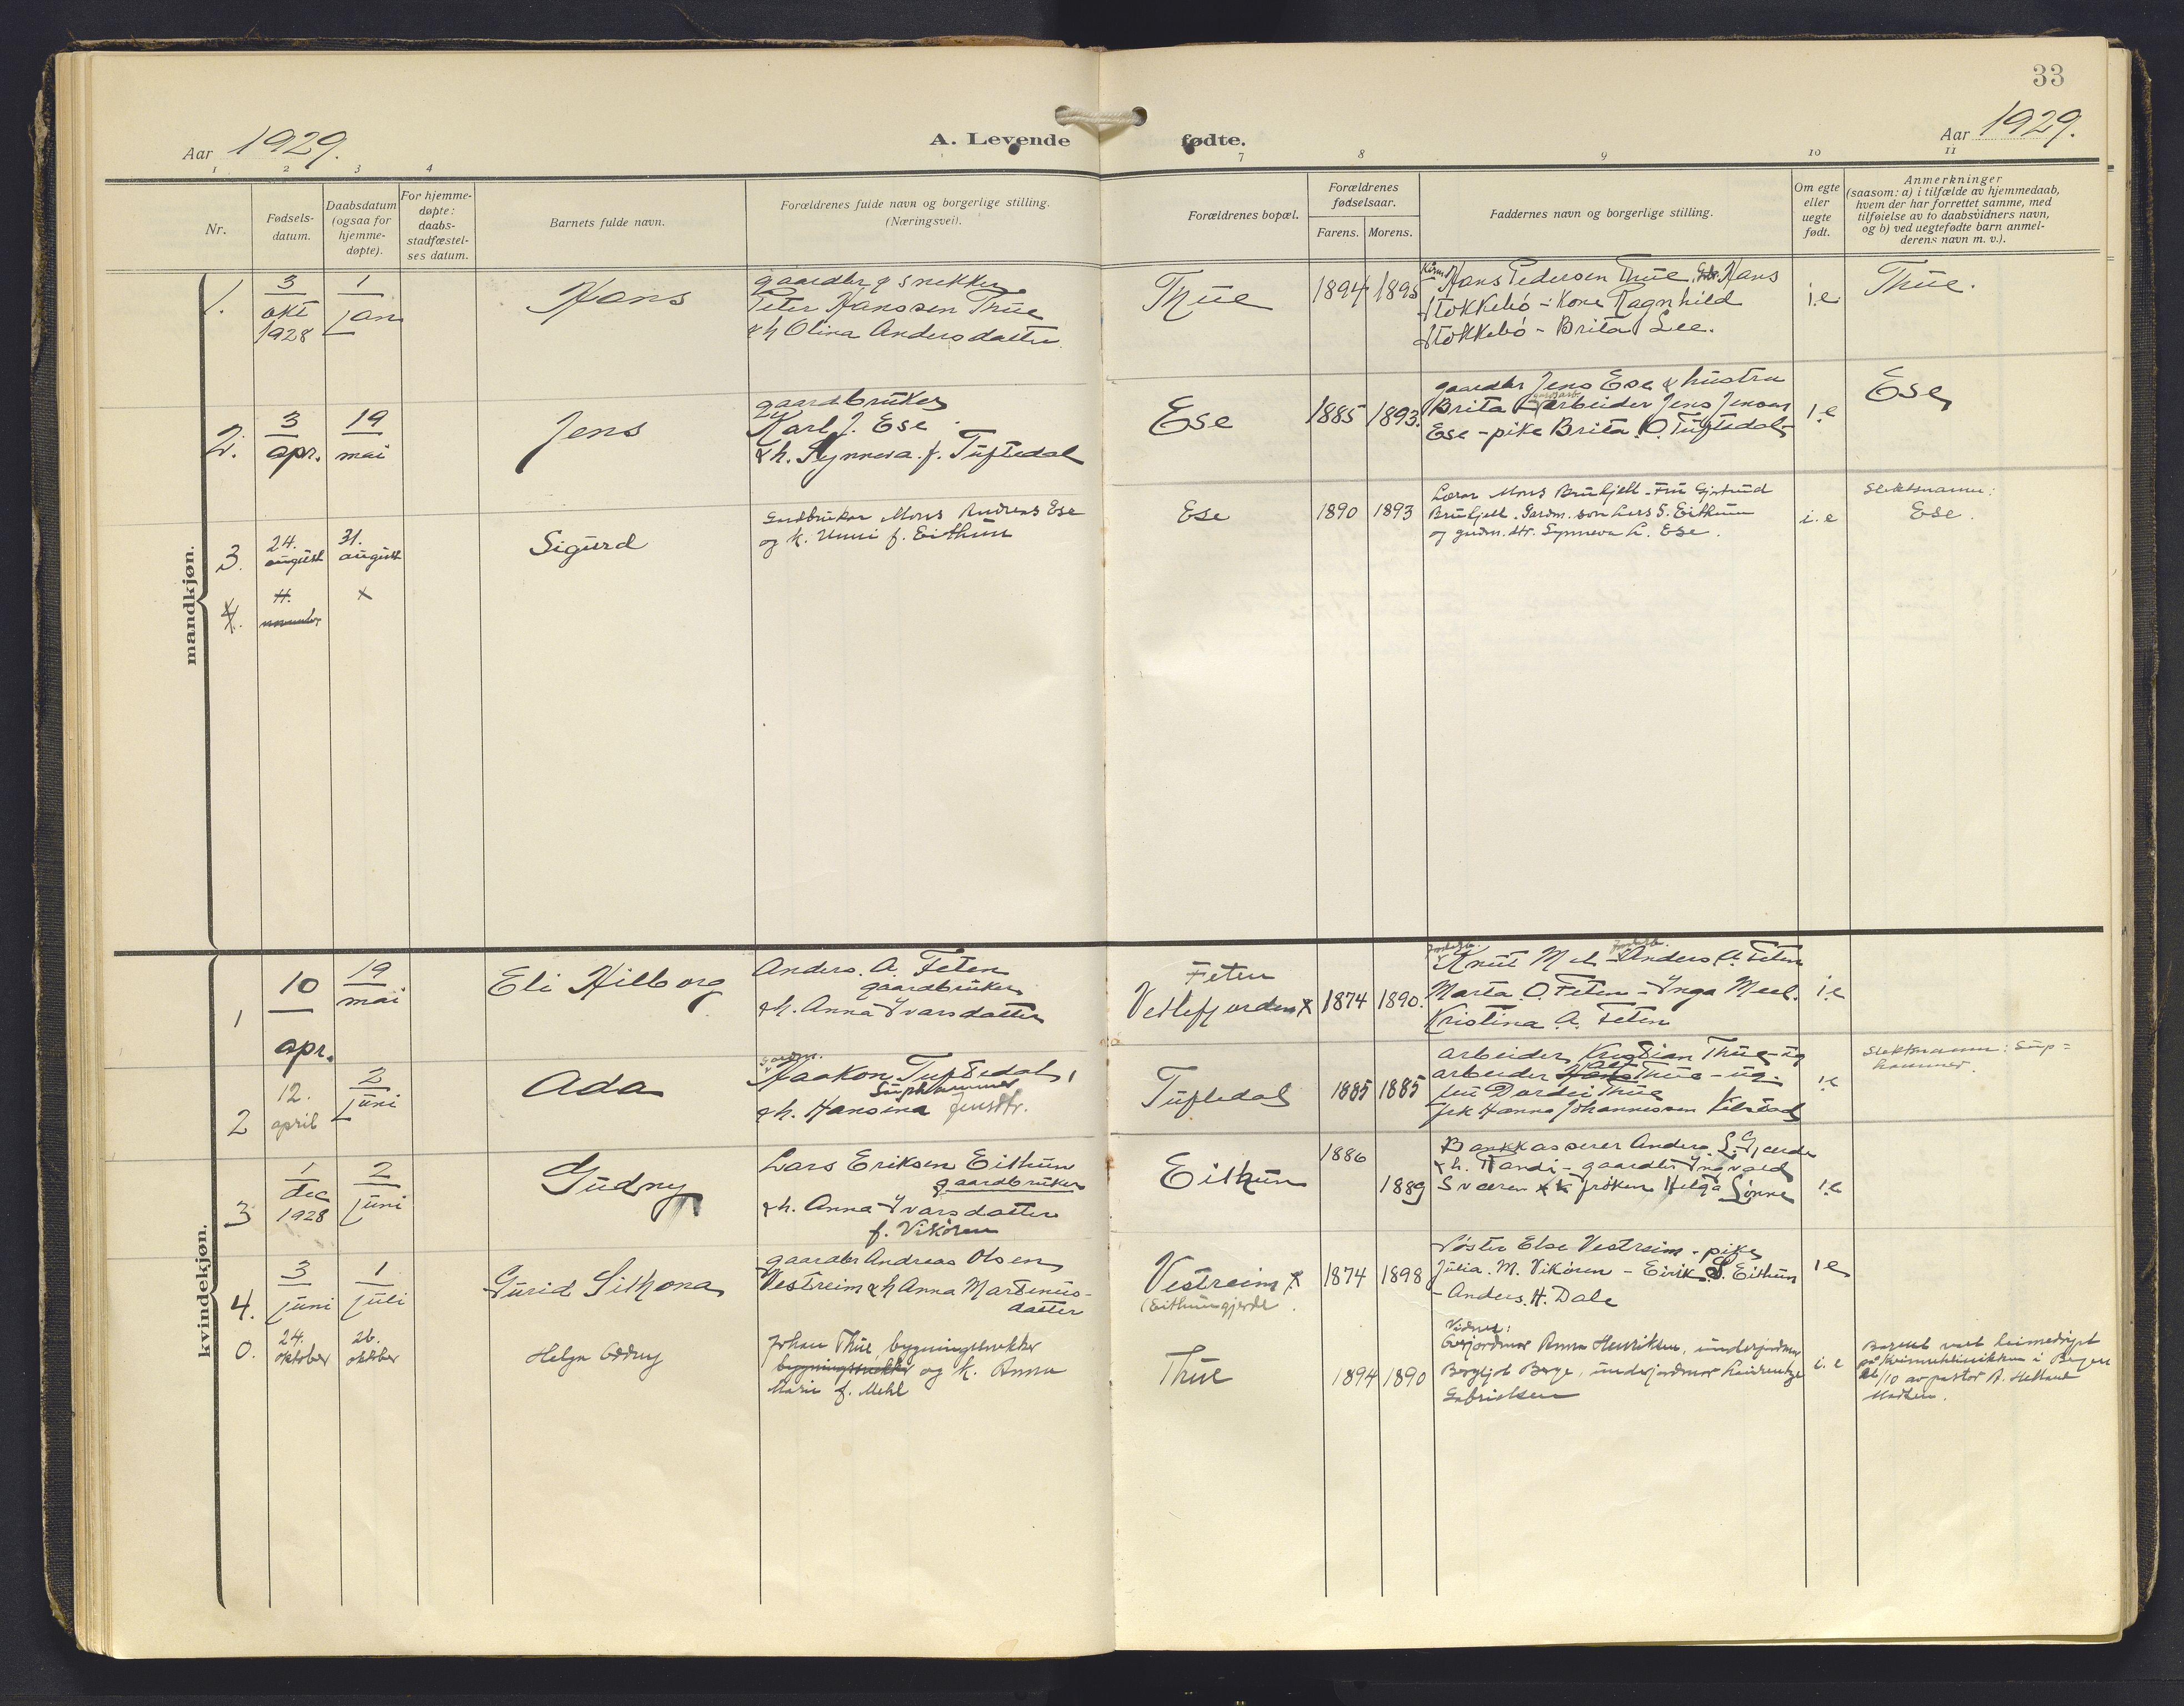 33
Aar 1929.
A. Levende fødte.
Aar 1929.
1 2 3 4 7 8 9 10 11
Nr.
Fødsels-
datum.
Daabsdatum
(ogsaa for
hjemme-
døpte).
For hjemme-
døpte:
daabs-
stadfæstel-
ses datum.
Barnets fulde navn.
Forældrenes fulde navn og borgerlige stilling.
(Næringsvei).
Forældrenes bopæl.
Forældrenes
fødselsaar.
Farens. Morens.
Faddernes navn og borgerlige stilling.
Om egte
eller
uegte
født.
Anmerkninger
(saasom: a) i tilfælde av hjemmedaab,
hvem der har forrettet samme, med
tilføielse av to daabsvidners navn,
og b) ved uegtefødte barn anmel-
derens navn m. v.).
mandkjøn.
1.
3
okt
1928
1
jan
Hans
gaardbr & snekker
Peter Hanssen Thue
& h Olina Andersdatter
Thue
1894 1895
Hans Pedersen Thue. Gbr. Hans
Stokkebö - Kone Ragnhild
Stokkebö - Brita Lee.
i.e
Thue.
2.
3
apr.
19
mai
Jens
gaardbruker
Karl J. Ese
& h. Synneva f. Tuftedal
Ese
1885 1893.
gaardbr Jens Ese & hustru
Brita - arbeider Jens Jensen
Ese - pike Brita O. Tuftedal
i.e
Ese
3.
24.
august
31.
august
Sigurd
Gardbrukar Mons Andreas Ese
og k. Unni f. Eithun
Ese
1890 1893
Lærar Mons Brukjell - Fru Gjertrud
Brukjell. Gardm. son Lars S. Eithun
og gardm. dtr. Synneva L. Ese.
i.e
Slektsnamn:
Ese.
4.
november
x
kvindekjøn.
1
10
apr.
19
mai
Eli Hilborg
Anders. A. Feten
gaardbruker
& h. Anna Ivarsdatter
Feten
Vetlefjorden x
1874 1890.
Knut Mel - Anders A. Feten
Marta O. Feten - Inga Meel.
Kristina A. Feten
i.e
2
12.
april
2
juni
Ada
gardm.
Haakon Tuftedal,
Suphammer
& h. Hansina Jensdtr.
Tuftedal
1885 1885
arbeider Kristian Thue - ug
arbeider Thue - ug.
fru Dordei Thue
frk Hanna Johannessen Kilstad
i.e
Slektsnamn: Sup=
hammer.
3
1
dec
1928
2
juni
Gudny
Lars Eriksen Eithun
gaardbruker
& h. Anna Ivarsdatter
f. Vikören
Eithun
1886
1889
Bankkasserer Anders. L. Gjærde
& h. Randi - gaardbr Ingvard
Sværen & k fröken Helga Lönne
i.e
4.
3
juni
1
juli
Gurid Sithona
gaardbr Andreas Olsen
Vestreim & h Anna Martinus-
datter
Vestreim x
(Eithunsgjerde).
1874 1898
Söster Else Vestreim - pike
Julia. M. Vikören - Eirik S. Eithun
- Anders. H. Dale
i e
0.
24.
oktober
26.
oktober
Helga Oddny
Johan Thue, bygningssnekker
bygningssnekker og k. Anna
Marie f. Mehl
Thue
1894 1890
Vidner:
Overjordmor Anna Henriksen, underjordmor
Bergljot Berge, underjordmor
Gabrielsen
i.e
Barnet vart heimedøypt
på Kvinneklinikken i Bergen
26/10 av pastor A. Helland
Madsen.